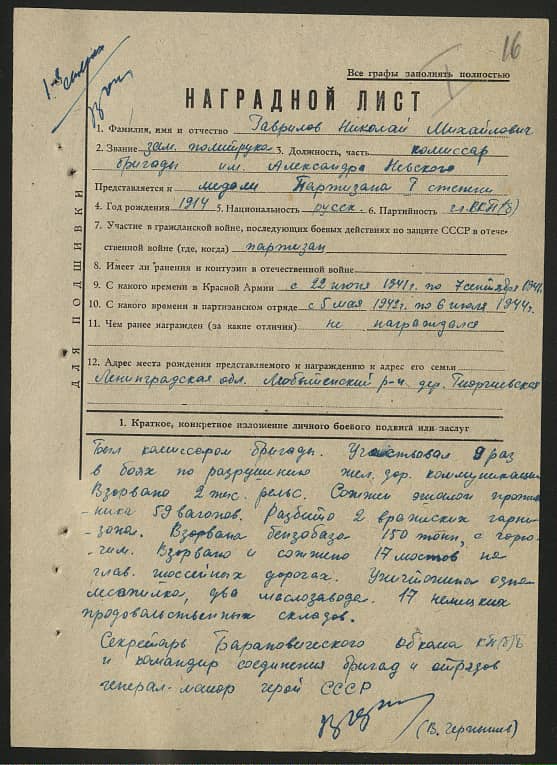 16
1-й степени
Все графы заполнять полностью
НАГРАДНОЙ ЛИСТ
1. Фамилия, имя и отчество Гаврилов Николай Михайлович
2. Звание зам. политрука 3. Должность, часть комиссар
бригады им. Александра Невского
Представляется к медали Партизана I степени
4. Год рождения 1914 5. Национальность русск. 6. Партийность чл. ВКП(б)
7. Участие в гражданской войне, последующих боевых действиях по защите СССР в отече-
ственной войне (где, когда) партизан
8. Имеет ли ранения и контузии в отечественной войне
9. С какого времени в Красной Армии с 22 июня 1941 г. по 7 сентября 1941 г.
10. С какого времени в партизанском отряде с 5 мая 1942 г. по 6 июля 1944 г.
11. Чем ранее награжден (за какие отличия) не награждался
12. Адрес места рождения представляемого к награждению и адрес его семьи
Ленинградская обл. Любытенский р-н, дер. Георгиевская
ДЛЯ ПОДШИВКИ
1. Краткое, конкретное изложение личного боевого подвига или заслуг
Был комиссаром бригады. Участвовал 9 раз
в боях по разрушению жел. дор. коммуникации
Взорвано 2 тыс. рельс. Сожжен эшалон против-
ника 59 вагонов. Разбито 2 вражеских гарни-
зона. Взорвана бензобаза 150 тонн, с горю-
чим. Взорвано и сожжено 17 мостов на
глав. шоссейных дорогах. Уничтожена одна
лесопилка, два маслозавода. 17 немецких
продовольственных складов.
Секретарь Барановического обкома КП(б)Б
и командир соединения бригад и отрядов
генерал-майор герой СССР
(В. Чернышев)